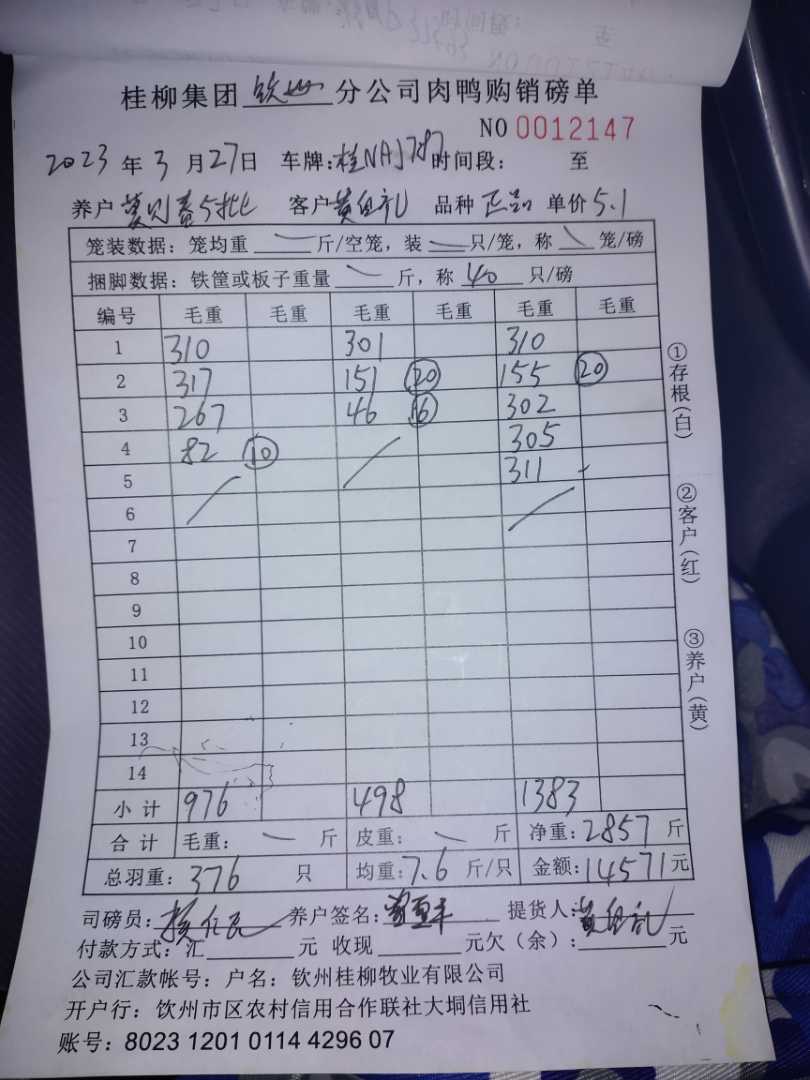 桂柳集团 钦州 分公司肉鸭购销磅单
NO 0012147
2023 年 3 月 27 日 车牌:桂NAJ787 时间段: 至
养户 5批 客户 黄 礼 品种 正品 单价 5.1
笼装数据: 笼均重 斤/空笼, 装 只/笼, 称 笼/磅
捆脚数据: 铁筐或板子重量 斤, 称 40 只/磅
编号 毛重 毛重 毛重 毛重 毛重 毛重
1 310 301 310
2 317 151 20 155 20
3 267 46 6 302
4 82 10 305
5 311
6
7
8
9
10
11
12
13
14
小计 976 498 1383
合计 毛重: 斤 皮重: 斤 净重: 2857 斤
总羽重: 376 只 均重: 7.6 斤/只 金额: 14571 元
司磅员: 养户签名: 提货人: 黄 礼
付款方式: 汇 元 收现 元欠(余): 元
公司汇款帐号: 户名: 钦州桂柳牧业有限公司
开户行: 饮州市区农村信用合作联社大垌信用社
账号: 8023 1201 0114 4296 07
①存根(白)
②客户(红)
③养户(黄)